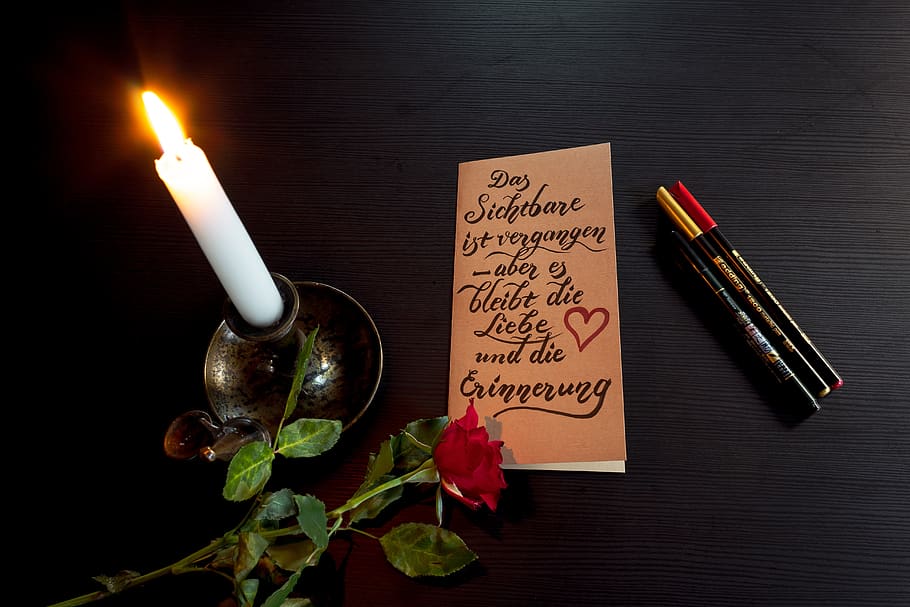 Das
Sichtbare
ist vergangen
– aber es
bleibt die
Liebe
und die
Erinnerung